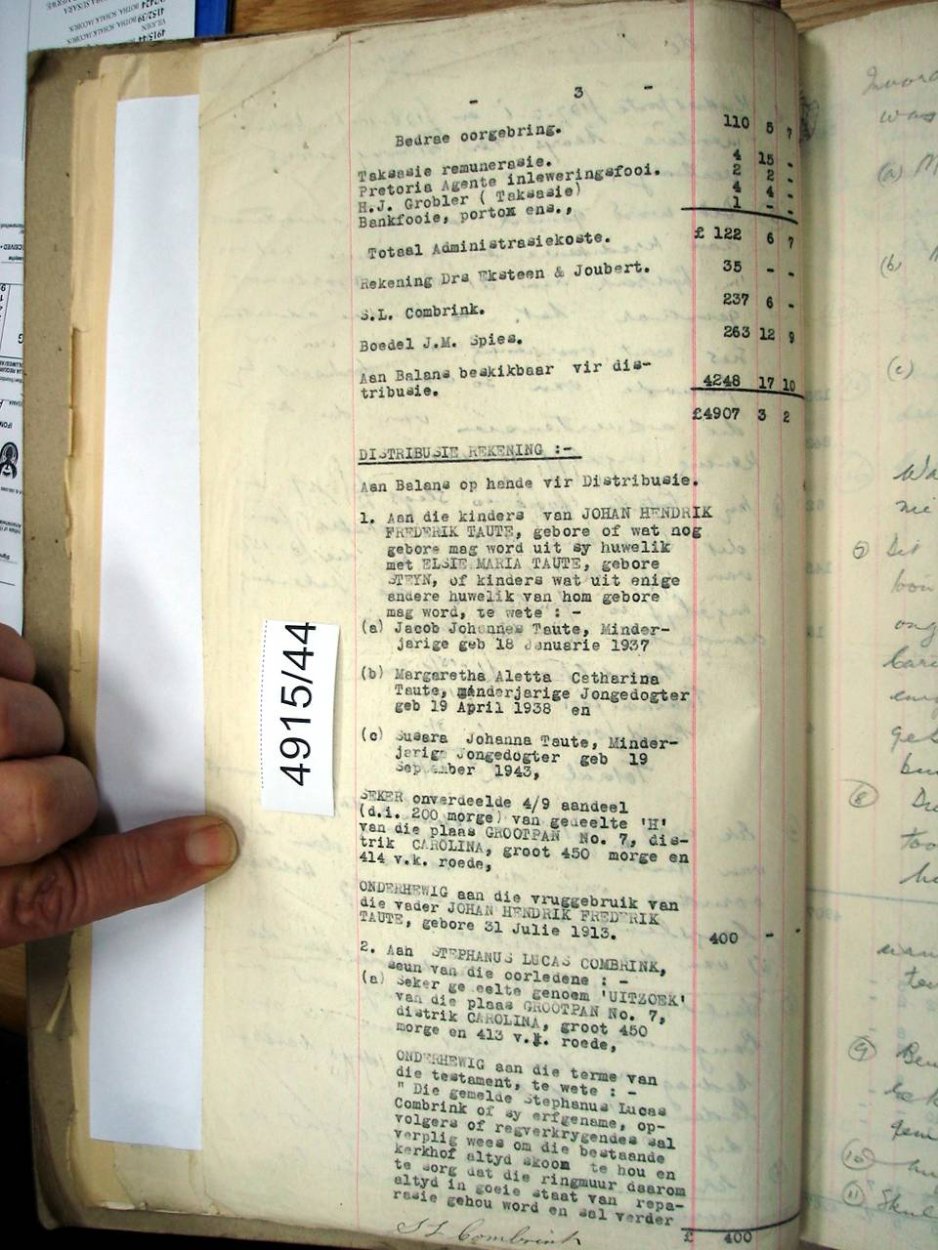 - 3 -
Bedrae oorgebring. 110 5 7
Taksasie remunerasie. 4 15 -
Pretoria Agente inleweringsfooi. 2 2 -
H.J. Grobler ( Taksasie) 4 4 -
Bankfooie, portox ens., 1 - -
Totaal Administrasiekoste. £ 122 6 7
Rekening Drs Eksteen & Joubert. 35 - -
S.L. Combrink. 237 6 -
Boedel J.M. Spies. 263 12 9
Aan Balans beskikbaar vir dis-
tribusie. 4248 17 10
£4907 3 2
DISTRIBUSIE REKENING :-
Aan Balans op hande vir Distribusie.
1. Aan die kinders van JOHAN HENDRIK
FREDERIK TAUTE, gebore of wat nog
gebore mag word uit sy huwelik
met ELSIE MARIA TAUTE, gebore
STEYN, of kinders wat uit enige
andere huwelik van hom gebore
mag word, te wete : -
(a) Jacob Johannes Taute, Minder-
jarige geb 18 Januarie 1937
(b) Margaretha Aletta Catharina
Taute, minderjarige Jongedogter
geb 19 April 1938 en
(c) Susara Johanna Taute, Minder-
jarige Jongedogter geb 19
September 1943,
SEKER onverdeelde 4/9 aandeel
(d.i. 200 morge) van gedeelte 'H'
van die plaas GROOTPAN No. 7, dis-
trik CAROLINA, groot 450 morge en
414 v.k. roede,
ONDERHEWIG aan die vruggebruik van
die vader JOHAN HENDRIK FREDERIK
TAUTE, gebore 31 Julie 1913. 400 - -
2. Aan STEPHANUS LUCAS COMBRINK,
seun van die oorledene : -
(a) Seker ge eelte genoem 'UITZOEK'
van die plaas GROOTPAN No. 7,
distrik CAROLINA, groot 450
morge en 413 v.k. roede,
ONDERHEWIG aan die terme van
die testament, te wete : -
" Die gemelde Stephanus Lucas
Combrink of sy erfgename, op-
volgers of regverkrygendes sal
verplig wees om die bestaande
kerkhof altyd skoom te hou en
te sorg dat die ringmuur daarom
altyd in goeie staat van repa-
rasie gehou word en sal verder
£ 400
S L Combrink
4915/44
was
(a)
(b)
(c)
nie
Dit
(8)
(9)
(10)
(11) Skul